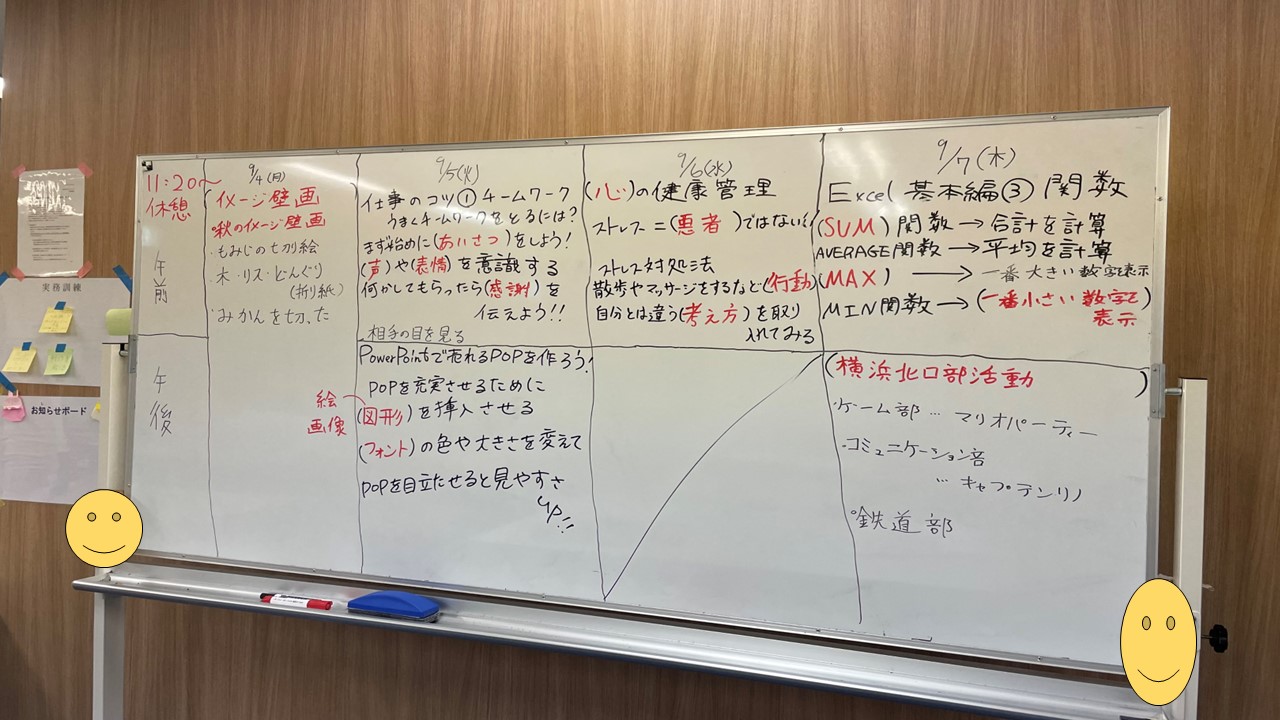 11:20〜
休憩
午前
午後
9/4(月)
イメージ壁画
・秋のイメージ壁画
・もみじの切り絵
木・リス・どんぐり
(折り紙)
・みかんを切った
9/5(火)
仕事のコツ① チームワーク
うまくチームワークをとるには?
まず始めに(あいさつ)をしよう!
(声)や(表情)を意識する
何かしてもらったら(感謝)を
伝えよう!!
相手の目を見る
PowerPointで売れるPOPを作ろう!
POPを充実させるために
絵
画像
(図形)を挿入させる
(フォント)の色や大きさを変えて
POPを目立たせると見やすさ
UP!!
9/6(水)
(心)の健康管理
ストレス=(悪者)ではない!
ストレス対処法
散歩やマッサージをするなど(行動)
自分とは違う(考え方)を取り
入れてみる
9/7(木)
Excel 基本編③ 関数
(SUM)関数→合計を計算
AVERAGE関数→平均を計算
(MAX)→一番大きい数字表示
MIN関数→(一番小さい数字を
表示)
(横浜北口部活動)
・ゲーム部…マリオパーティー
・コミュニケーション部
…キャプテンリノ
・鉄道部
実務訓練
お知らせボード